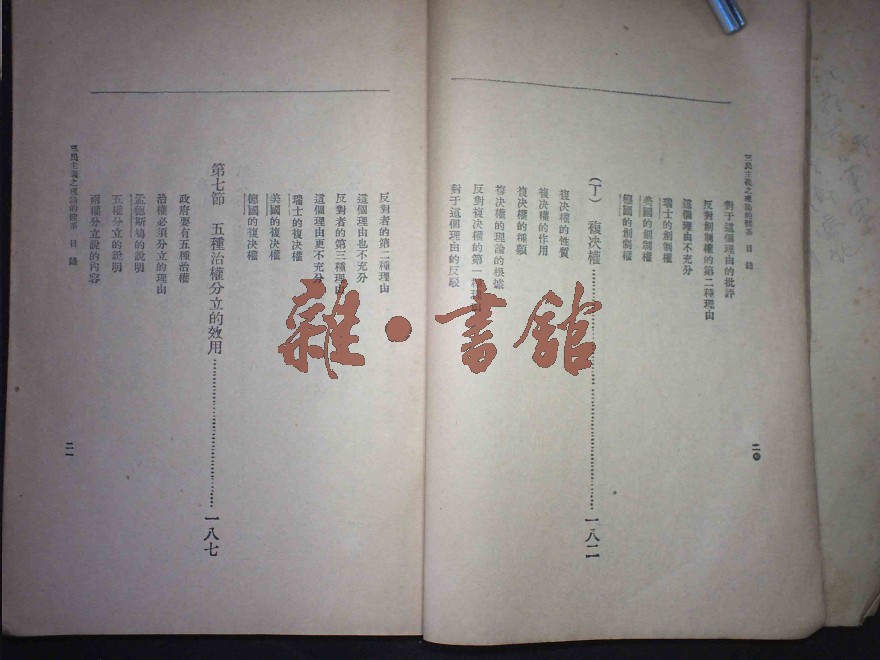 三民主義之理論的體系 目錄
對于這個理由的批評
反對創制權的第二種理由
這個理由不充分
瑞士的創制權
美國的創制權
德國的創制權
(丁) 複决權……………………一八二
複决權的性質
複决權的作用
複决權的種類
複决權的理論的根據
反對複决權的第一種理由
對于這個理由的反駁
二〇
反對者的第二種理由
這個理由也不充分
反對者的第三種理由
這個理由更不充分
瑞士的複决權
美國的複决權
德國的複决權
第七節 五種治權分立的效用……………………一八七
政府要有五種治權
治權必須分立的理由
孟德斯鳩的說明
五權分立的說明
兩權分立說的內容
三民主義之理論的體系 目錄
二一
雜·書館